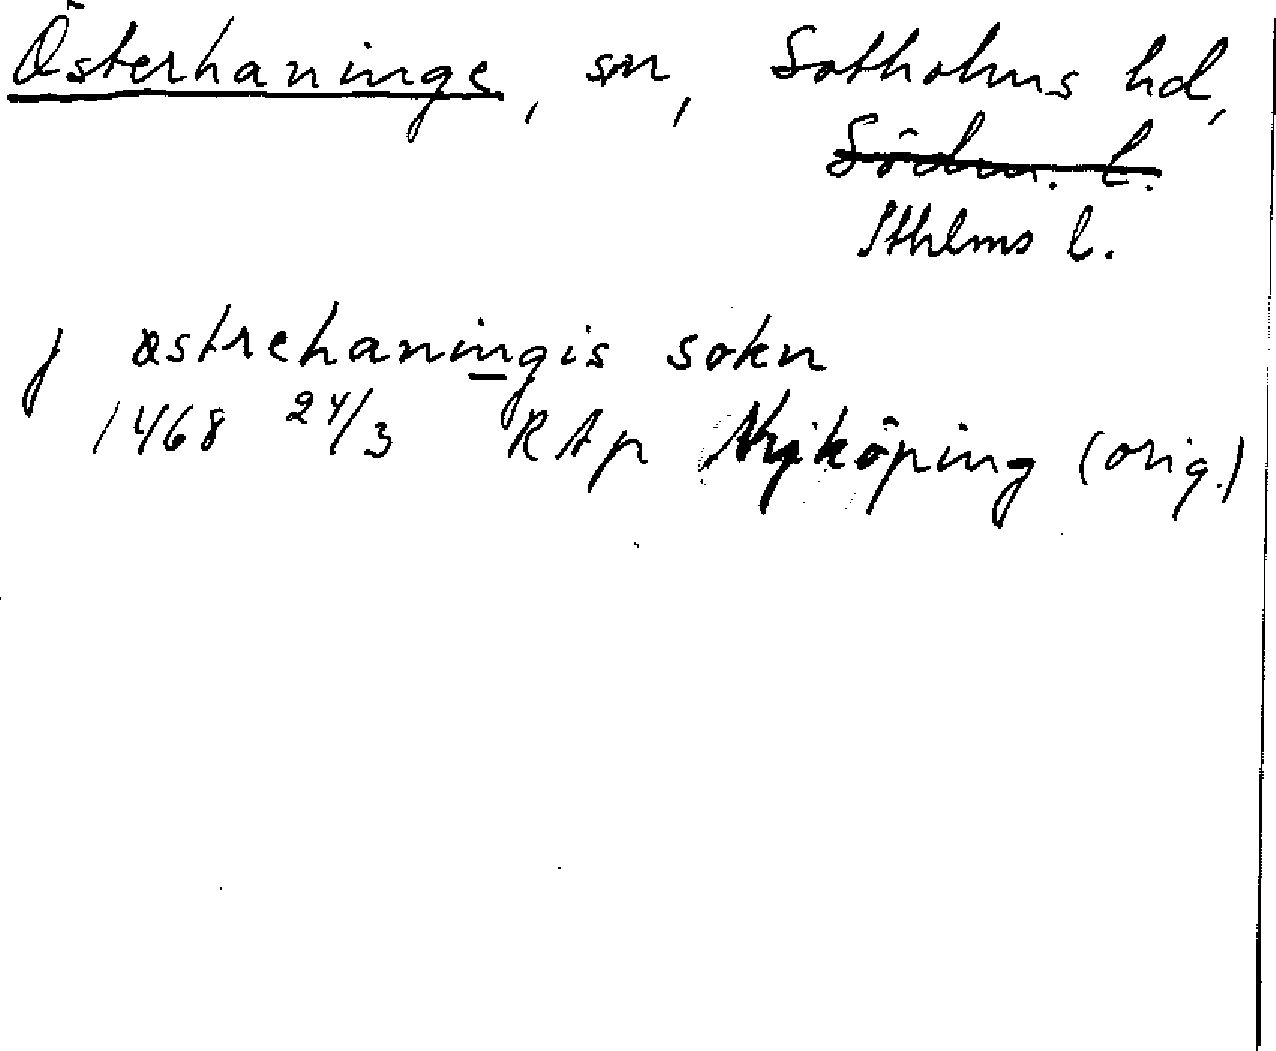 Österhaninge, sn, Sotholms hd,
Södm. l.
Sthlms l.
j østrehaningis sokn
1468 24/3 RAp Nyköping (orig.)